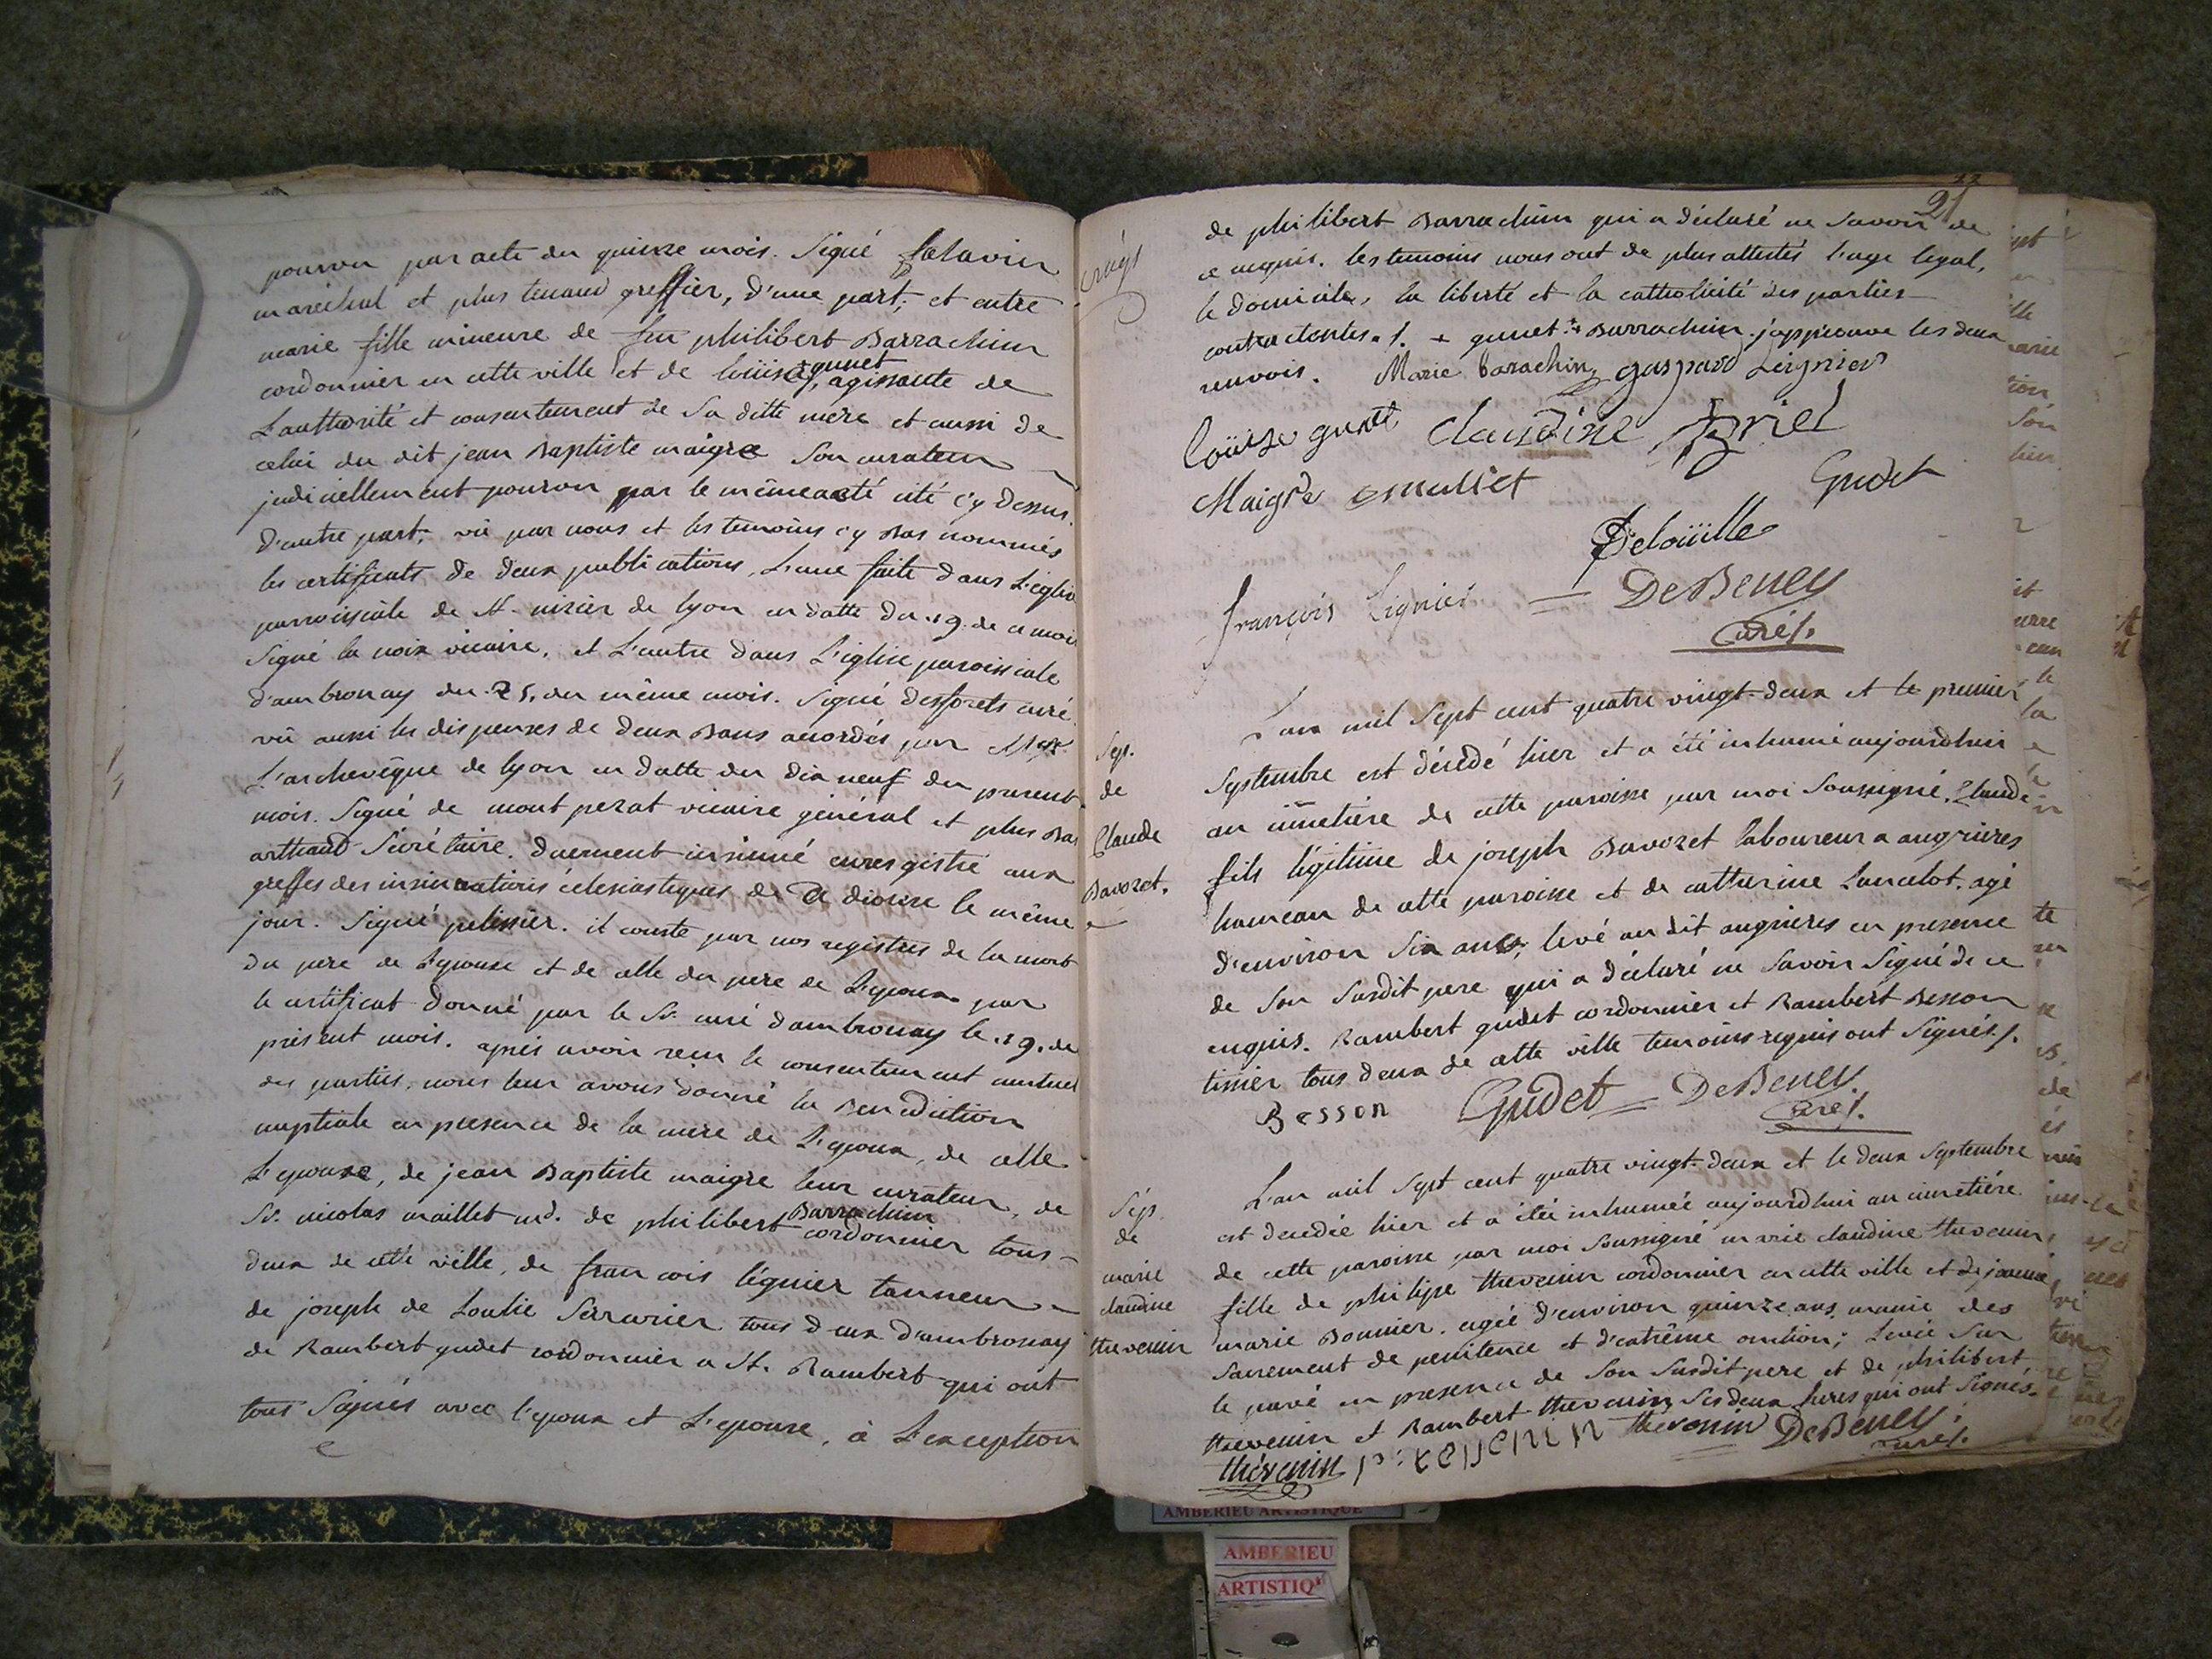 pourvu par acte du quinze mois. Signé
marechal et plus tenand greffier, d'une part; et entre
marie fille mineure de feu philibert Barrachin
cordonnier en cette ville et de loüise gunet, agissante de
L'authorité et consentement de Sa ditte mere et aussi de
celui du dit jean Baptiste maigre Son curateur
judiciellement pourvu par le même acté cité c'y dessus.
d'autre part; vû par nous et les temoins c'y bas nommés
les certificats de deux publications, L'une faite dans L'eglise
parroissiale de St. nizier de lyon en datte du 19. de ce mois
Signé la noix vicaire, et L'autre dans L'eglise paroissiale
d'ambronay du 25. du même mois. Signé desforets curé.
vû aussi les dispenses de deux Bans accordés par Mgr.
L'archevêque de lyon en datte du dix neuf du present
mois. Signé de mont perat vicaire général et plus bas
arthaud Sécrétaire. duement insinué enregistré aux
greffes des insinuations éclesiastiques de ce diocese le même
jour. Signé pelissier. il conste par nos registres de la mort
du pere de L'epouse et de celle du pere de L'epoux par
le certificat donné par le Sr. curé d'ambronay le .19. du
present mois. après avoir reçu le consentement mutuel
des parties, nous leur avons donné la Benediction
nuptiale en presence de la mere de L'epoux, de celle
L'epouse, de jean Baptiste maigre leur curateur, de
Sr. nicolas maillet md. de philibert Barrachin cordonnier tous
deux de cette ville, de francois légnier tanneur
de joseph de Loulie Serrurier tous deux d'ambronay
de Rambert gudet cordonnier a St. Rambert qui ont
tous Signés avec l'epoux et L'epouse, à L'exception
21
de philibert Barrachin qui a déclaré ne Savoir de
ce enquis. les temoins nous ont de plus attestés l'age legal,
le domicile, la liberté et la catholicité des parties
contractantes ./. + gunet + Barrachin. j'approuve les deux
renvois. Marie barachin gaspard Leignier
loüise gunet claudine Briel
Maigre maillet Gudet
Deloüille
françois Lignier DeBeney
curé/.
Sep.
de
Claude
Bavozet.
L'an mil Sept cent quatre vingt-deux et le premier
Septembre est décédé hier et a été inhumé aujourdhui
au cimetière de cette paroisse par moi Soussigné, Claude
fils légitime de joseph Bavozet laboureur a angrieres
hameau de cette paroisse et de catherine Lancelot. agé
d'environ Six ans, levé au dit angrieres en presence
de Son Susdit pere qui a déclaré ne Savoir Signé de ce
enquis. Rambert gudet cordonnier et Rambert Besson
tissier tous deux de cette ville temoins requis ont Signés/.
Besson Gudet DeBeney.
curé/.
Sép.
de
marie
claudine
thevenin
L'an mil Sept cent quatre vingt-deux et le deux Septembre
est decedée hier et a été inhumée aujourd'hui au cimetière
de cette paroisse par moi Soussigné marie claudine thevenin,
fille de philipe thevenin cordonnier en cette ville et de jeanne
marie Bonnier. agée d'environ quinze ans, munie des
Sacrement de penitence et d'extrême onction; Levée Sur
le pavé en presence de Son Susdit pere et de philibert
thevenin et Rambert thevenin Ses deux freres qui ont Signés.
thévenin thevenin DeBeney.
curé/.
AMBERIEU ARTISTIQUE
AMBERIEU
ARTISTIQ